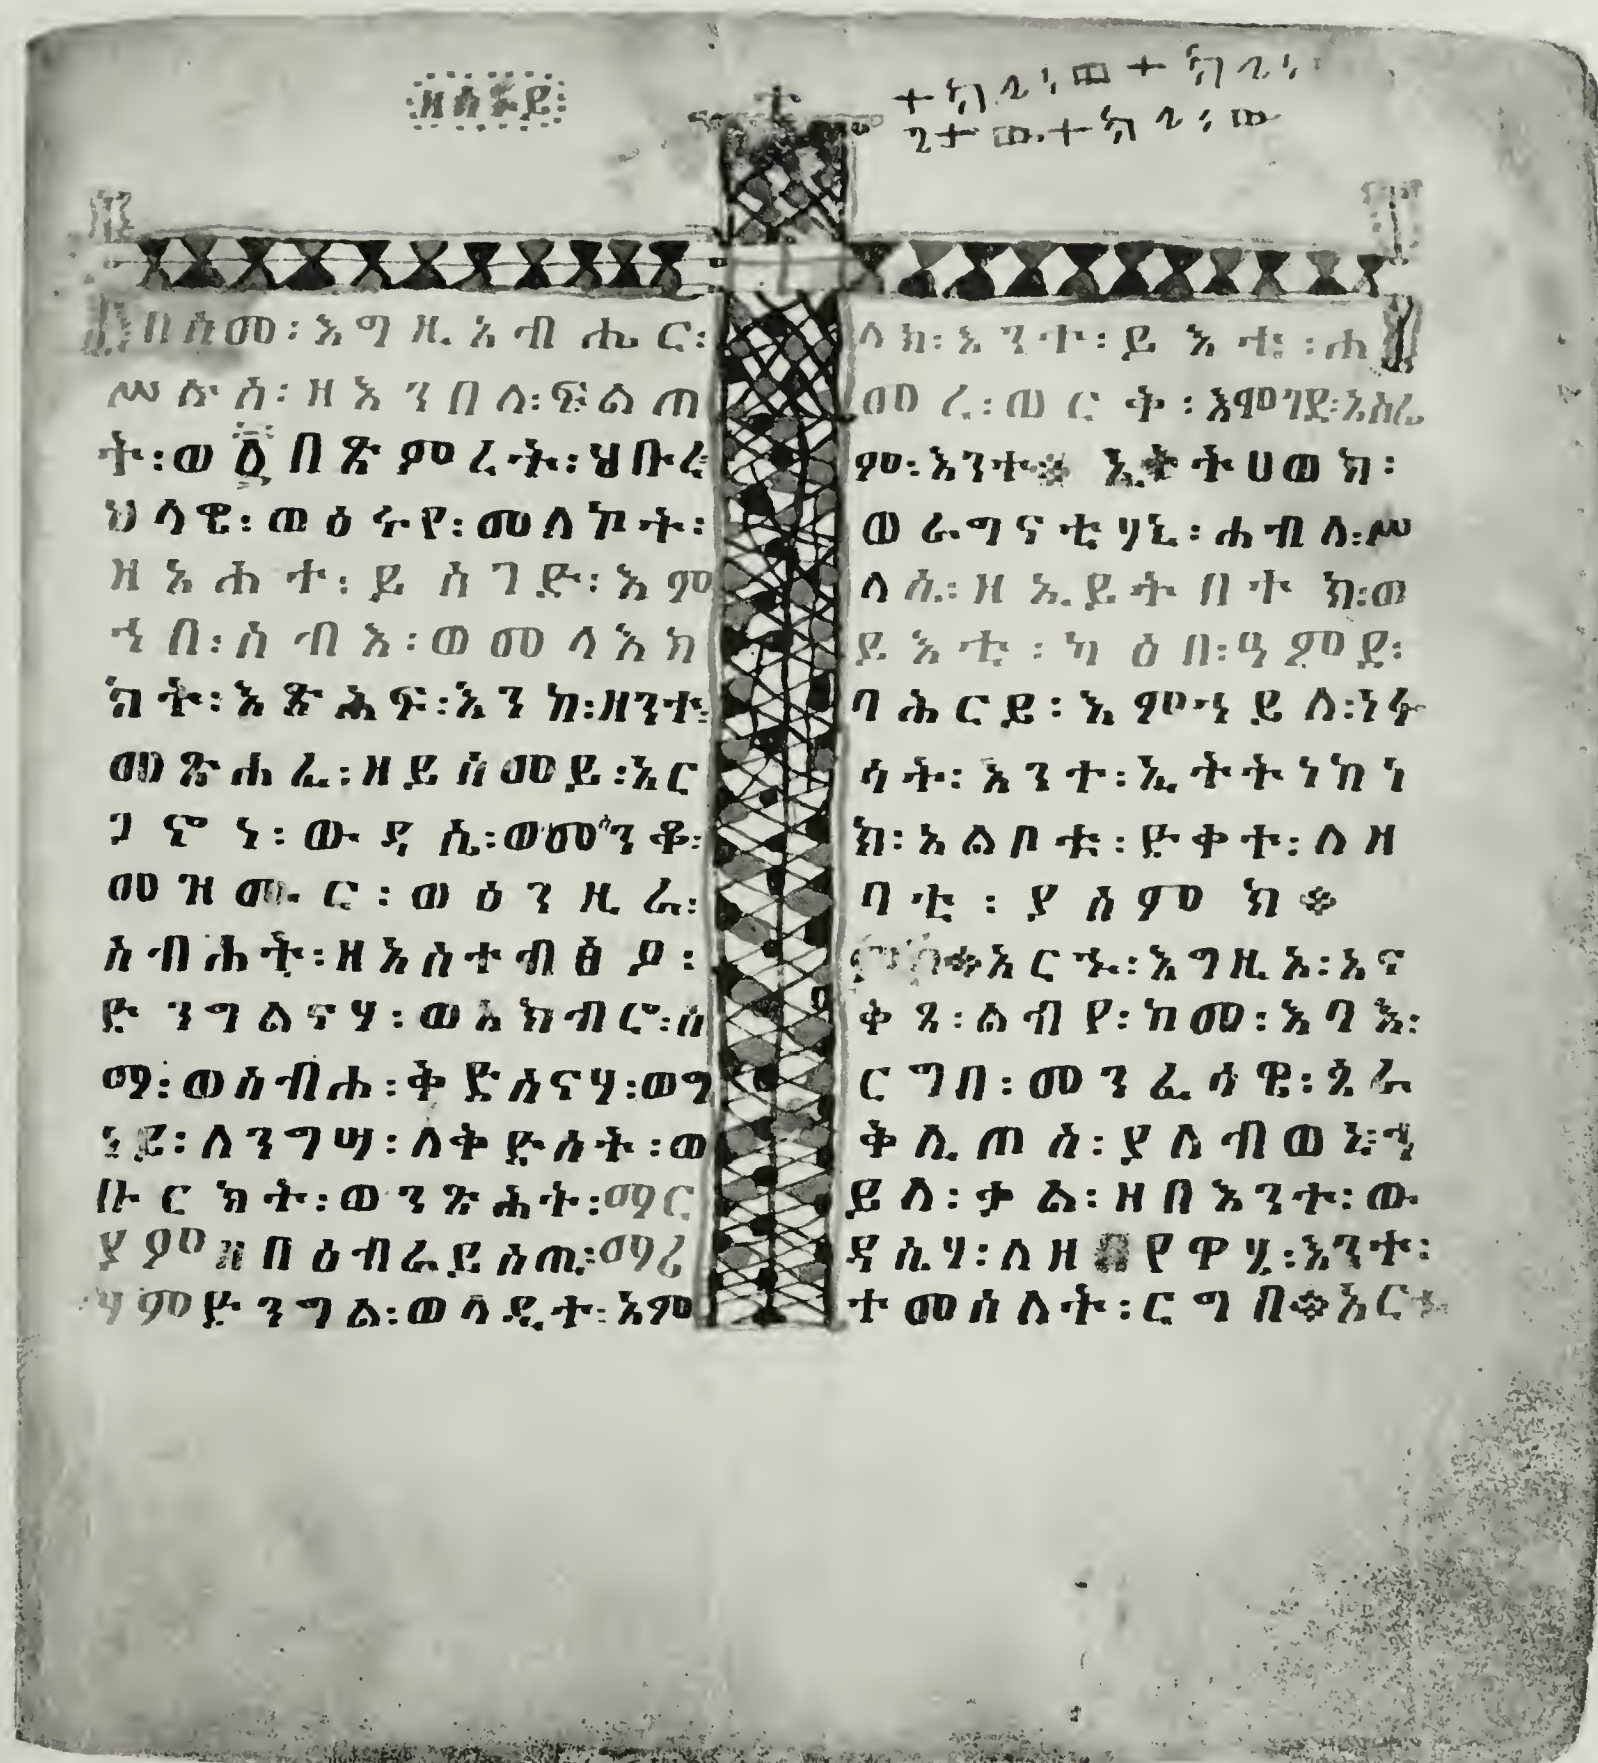 ዘሰኑይ
በስመ፡እግዚአብሔር፡
ሥሉስ፡ዘእንበለ፡ፍልጠ
ት፡ወ፩በጽምረት፡ህቡረ፡
ህላዌ፡ወዕሩየ፡መለኮት፡
ዘአሐተ፡ይሰገድ፡እም
ኀበ፡ሰብእ፡ወመላእክ
ክት፡እጽሕፍ፡እንከ፡ዘንተ፡
መጽሐፈ፡ዘይሰመይ፡አር
ጋኖነ፡ውዳሴ፡ወመሰንቆ፡
መዝሙር፡ወዕንዚራ፡
ስብሐት፡ዘአስተብፅዖ፡
ድንግልናሃ፡ወአክብሮ፡ስ
ማ፡ወስብሐ፡ቅድስናሃ፡ወግ
ናይ፡ለንግሣ፡ለቅድስት፡ወ
ቡርክት፡ወንጽሕት፡ማር
ያምዘበዕብራይስጢ፡ማሪ
ሃምድንግል፡ወላዲተ፡አም
ላክ፡እንተ፡ይእቲ፡ሐ
መረ፡ወርቅ፡እምገጸ፡አስሬ
ም፡እንተ፡ኢትትሀወክ፡
ወራግናቲሃኒ፡ሐብለ፡ሥ
ላሴ፡ዘኢይትበተክ፡ወ
ይእቲ፡ካዕበ፡ዓምደ፡
ባሕርይ፡እምኀይለ፡ነፋ
ሳት፡እንተ፡ኢትትነከነ
ክ፡አልቦቱ፡ድቀተ፡ለዘ
ባቲ፡ያሰምክ
አርኁ፡እግዚአ፡አና
ቅጸ፡ልብየ፡ከመ፡እባእ፡
ርግበ፡መንፈሳዌ፡ጰራ
ቅሊጦስ፡ያለብወኒ፡ኀ
ይለ፡ቃል፡ዘበእንተ፡ው
ዳሴሃ፡ለዘ የዋሃ፡እንተ፡
ተመሰለት፡ርግበ፡አርኁ